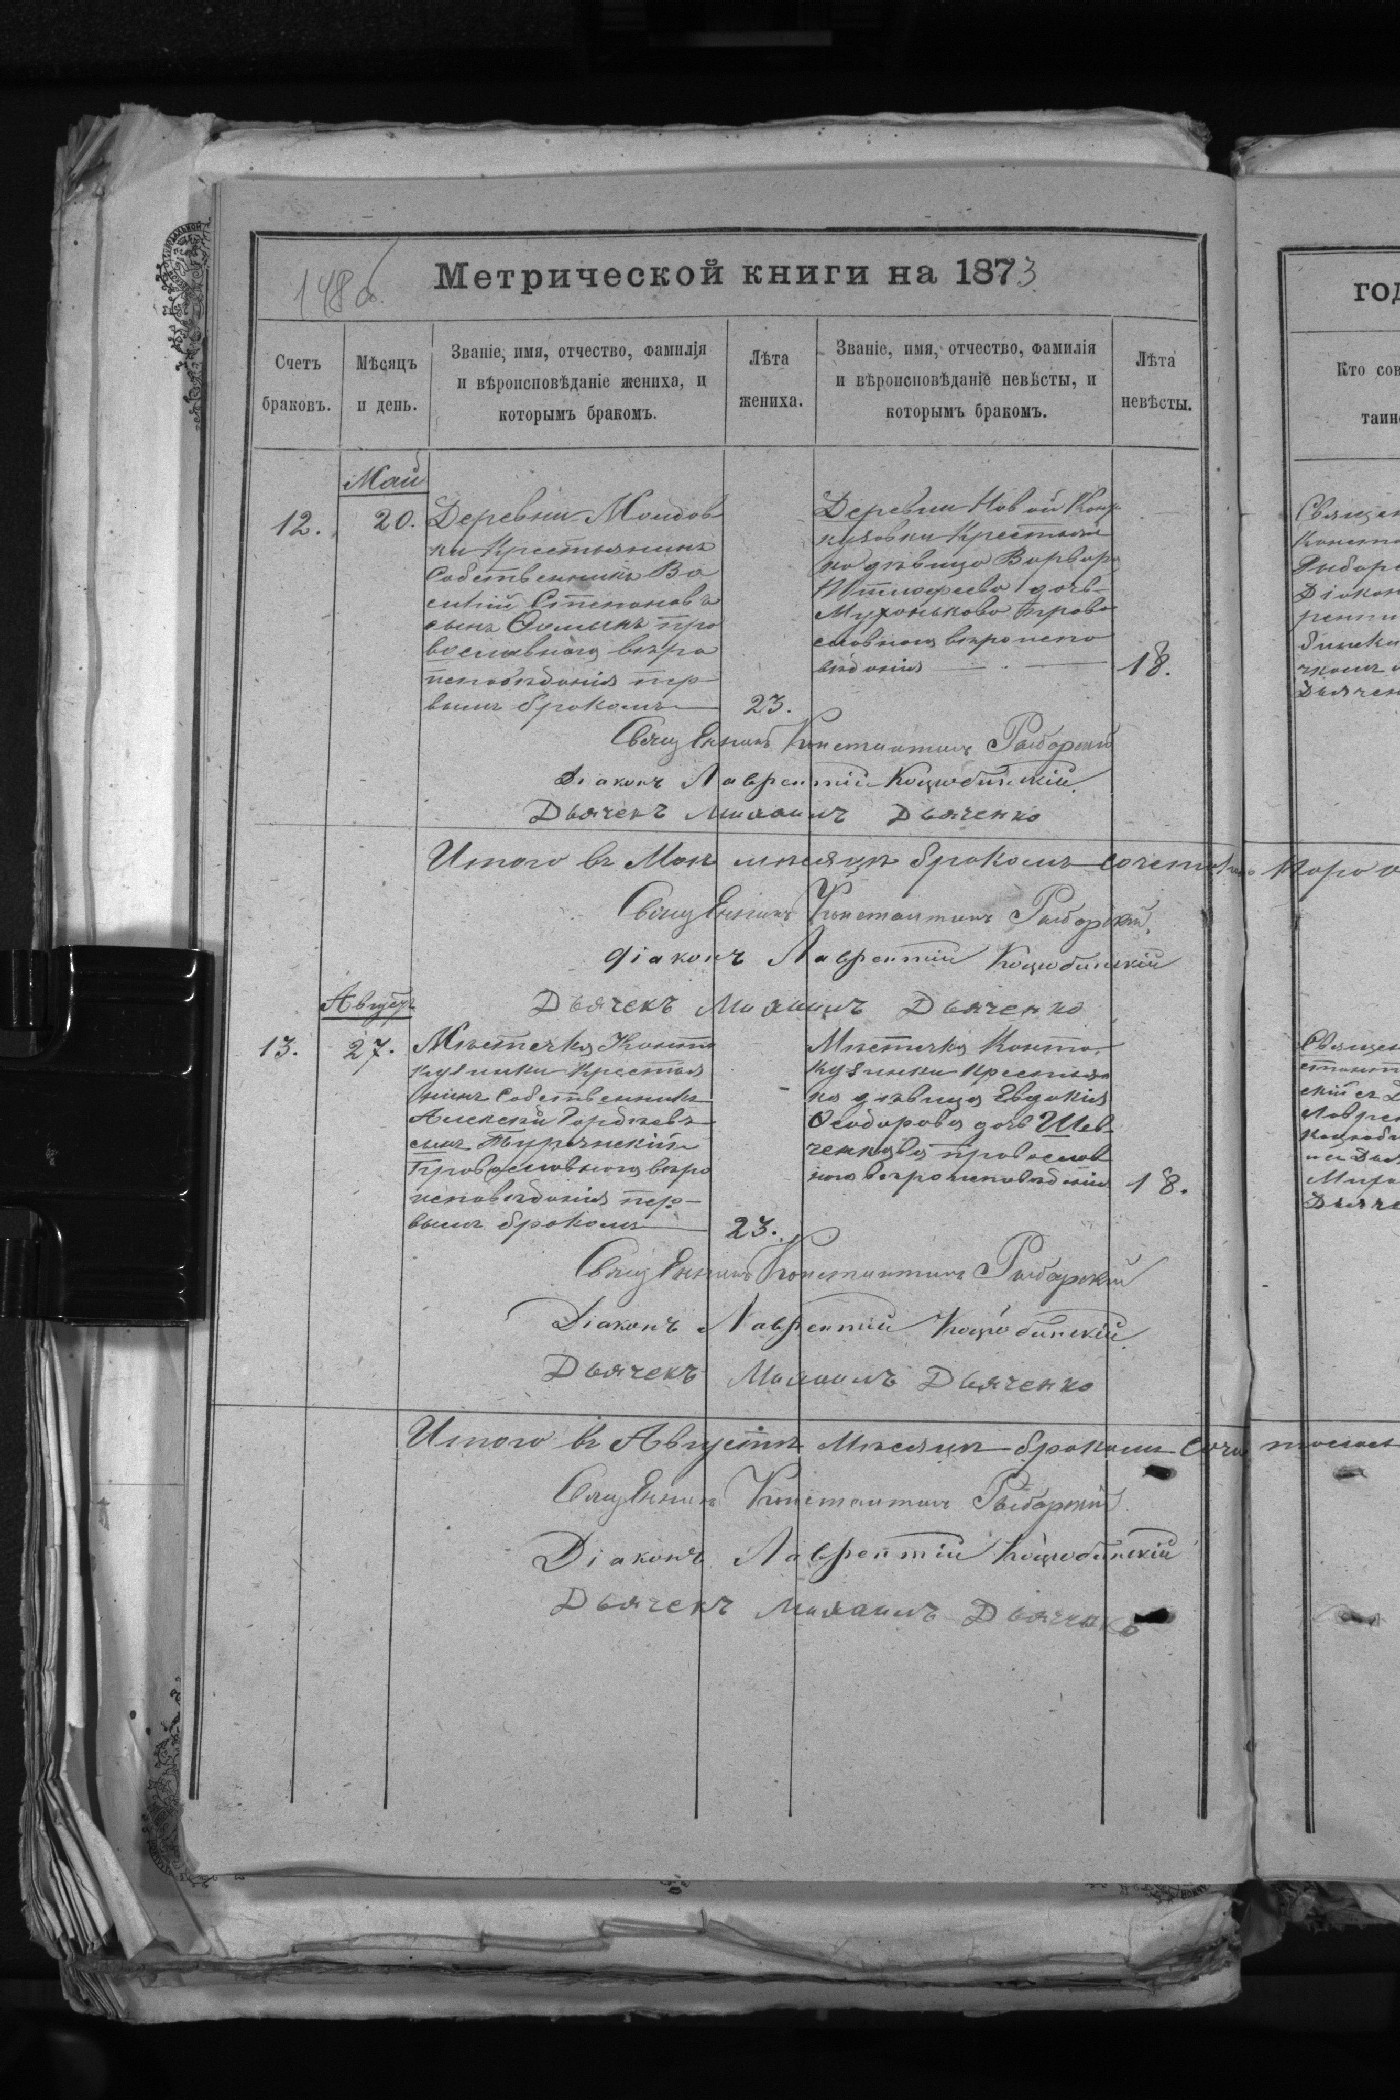 148 б.
Метрической книги на 1873
Счетъ
браковъ.
Мѣсяцъ
и день.
Званіе, имя, отчество, фамилія
и вѣроисповѣданіе жениха, и
которымъ бракомъ.
Лѣта
жениха.
Званіе, имя, отчество, фамилія
и вѣроисповѣданіе невѣсты, и
которымъ бракомъ.
Лѣта
невѣсты.
Май
12.
20.
Деревни Молдов
ки Крестьянинъ
Собственникъ Ва
силій Стеѣановъ
сынъ Ѳоминъ пра
вославнаго вѣро
исповѣданія пер-
вымъ бракомъ
23.
Деревни Новой
кузовки Крестьян
ка дѣвица Варвара
дочь
Муханькова Право
славнаго вѣроиспо
вѣданія
18.
Священникъ Константинъ Рыбарскій
Діаконъ Лаврентій Коцюбинскій.
Дьячекъ Михаилъ Дьяченко
Итого въ Маѣ мѣсяцѣ бракомъ
Священникъ Константинъ Рыбарскій.
Діаконъ Лаврентій Коцюбинскій
Дьячекъ Михаилъ Дьяченко
Августъ
13.
27.
Мѣстечка Канта
кузинки Крестья
нинъ Собственникъ
Алексѣй Гордѣевъ
сынъ
Православнаго вѣро
исповѣданія пер-
вымъ бракомъ
23.
Мѣстечка Канта
кузинки Крестьян
ка дѣвица Евдокія
Ѳеодорова дочь Шев
ченкова православ
наго вѣроисповѣданія
18.
Священникъ Константинъ Рыбарскій
Діаконъ Лаврентій Коцюбинскій
Дьячекъ Михаилъ Дьяченко
Итого въ Августѣ Мѣсяцѣ бракомъ
Священникъ Константинъ Рыбарскій
Діаконъ Лаврентій Коцюбинскій
Дьячекъ Михаилъ Дьяченко
год
Кто сов
таин